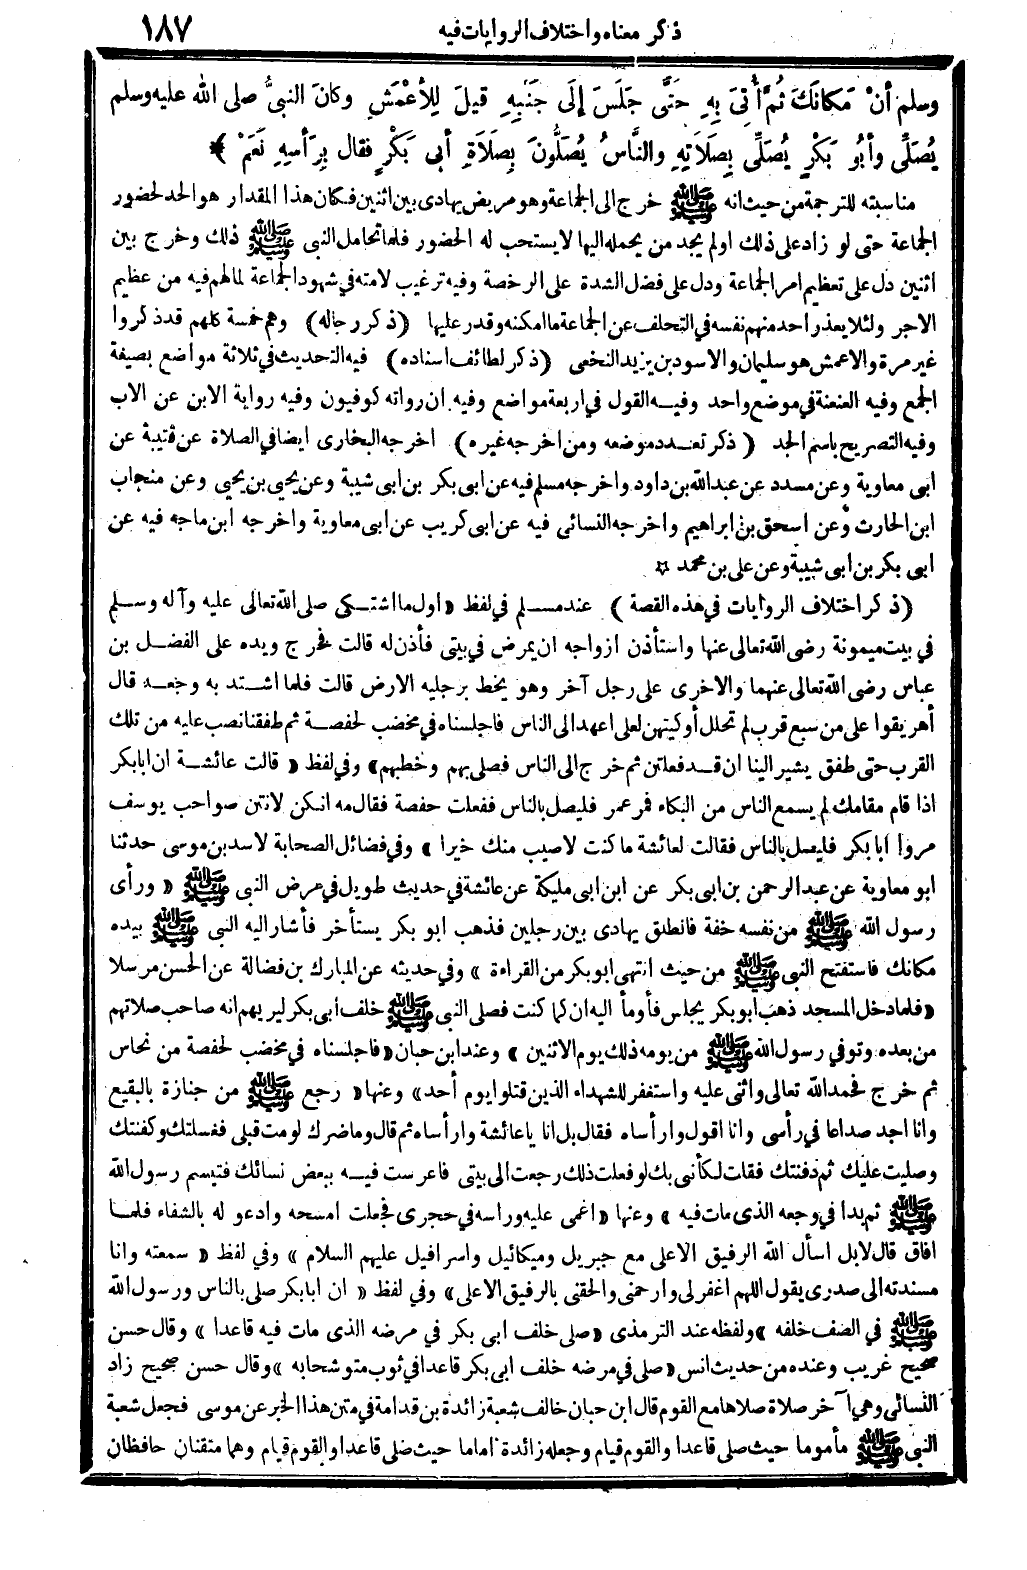 ذكر معناه واختلاف الروايات فيه ١٨٧
وسلم أنْ مَكانَكَ ثُمَّ أُتِىَ بِهِ حَتَّى جَلَسَ إلَى جَنْبِهِ قِيلَ لِلأَعْمَشِ وكانَ النبىُّ صلى الله عليه وسلم
يُصَلِّى وأبُو بَكْرٍ يُصَلِّى بِصَلَاتِهِ والنَّاسُ يُصَلُّونَ بِصَلَاةِ أبى بَكْرٍ فقال بِرَأسِهِ نَعَمْ ﴾
مناسبته للترجمة من حيث انه ﷺ خرج الى الجماعة وهو مريض يهادى بين اثنين فكان هذا المقدار هو الحد لحضور
الجماعة حتى لو زاد على ذلك اولم يجد من يحمله اليها لا يستحب له الحضور فلما تحامل النبى ﷺ ذلك وخرج بين
اثنين دل على تعظيم امر الجماعة ودل على فضل الشدة على الرخصة وفيه ترغيب لامته فى شهود الجماعة لما لهم فيه من عظيم
الاجر ولئلا يعذر احد منهم نفسه فى التخلف عن الجماعة ما امكنه وقدر عليها (ذكر رجاله) وهم خمسة كلهم قد ذكروا
غير مرة والاعمش هو سليمان والاسود بن يزيد النخعى (ذكر لطائف اسناده) فيه التحديث فى ثلاثة مواضع بصيغة
الجمع وفيه العنعنة فى موضع واحد وفيه القول فى اربعة مواضع وفيه ان رواته كوفيون وفيه رواية الابن عن الاب
وفيه التصريح باسم الجد (ذكر تعدد موضعه ومن اخرجه غيره) اخرجه البخارى ايضا فى الصلاة عن قتيبة عن
ابى معاوية وعن مسدد عن عبد الله بن داود واخرجه مسلم فيه عن ابى بكر بن ابى شيبة وعن يحيى بن يحيى وعن منجاب
ابن الحارث وعن اسحق بن ابراهيم واخرجه النسائى فيه عن ابى كريب عن ابى معاوية واخرجه ابن ماجه فيه عن
ابى بكر بن ابى شيبة وعن على بن محمد ☆
(ذكر اختلاف الروايات فى هذه القصة) عند مسلم فى لفظ « اول ما اشتكى صلى الله تعالى عليه وآله وسلم
فى بيت ميمونة رضى الله تعالى عنها واستأذن ازواجه ان يمرض فى بيتى فأذن له قالت فخرج ويده على الفضل بن
عباس رضى الله تعالى عنهما والاخرى على رجل آخر وهو يخط برجليه الارض قالت فلما اشتد به وجعه قال
أهريقوا على من سبع قرب لم تحلل أوكيتهن لعلى اعهد الى الناس فاجلسناه فى مخضب لحفصة ثم طفقنا نصب عليه من تلك
القرب حتى طفق يشير الينا ان قد فعلتن ثم خرج الى الناس فصلى بهم وخطبهم» وفى لفظ « قالت عائشة ان ابا بكر
اذا قام مقامك لم يسمع الناس من البكاء فمر عمر فليصل بالناس ففعلت حفصة فقال مه انكن لانتن صواحب يوسف
مروا ابا بكر فليصل بالناس فقالت لعائشة ما كنت لاصيب منك خيرا » وفى فضائل الصحابة لاسد بن موسى حدثنا
ابو معاوية عن عبد الرحمن بن ابى بكر عن ابن ابى مليكة عن عائشة فى حديث طويل فى مرض النبى ﷺ « ورأى
رسول الله ﷺ من نفسه خفة فانطلق يهادى بين رجلين فذهب ابو بكر يستأخر فأشار اليه النبى ﷺ بيده
مكانك فاستفتح النبى ﷺ من حيث انتهى ابو بكر من القراءة » وفى حديثه عن المبارك بن فضالة عن الحسن مرسلا
« فلما دخل المسجد ذهب ابو بكر يجلس فأومأ اليه ان كما كنت فصلى النبى ﷺ خلف أبى بكر ليريهم انه صاحب صلاتهم
من بعده وتوفى رسول الله ﷺ من يومه ذلك يوم الاثنين » وعند ابن حبان « فاجلسناه فى مخضب لحفصة من نحاس
ثم خرج فحمد الله تعالى واثنى عليه واستغفر للشهداء الذين قتلوا يوم أحد » وعنها « رجع ﷺ من جنازة بالبقيع
وانا اجد صداعا فى رأسى وانا اقول وارأساه فقال بل انا يا عائشة وارأساه ثم قال وما ضرك لو مت قبلى فغسلتك وكفنتك
وصليت عليك ثم دفنتك فقلت لكأنى بك لو فعلت ذلك رجعت الى بيتى فاعرست فيه ببعض نسائك فتبسم رسول الله
ﷺ ثم بدا فى وجعه الذى مات فيه » وعنها « اغمى عليه ورأسه فى حجرى فجعلت امسحه وادعو له بالشفاء فلما
افاق قال لا بل اسأل الله الرفيق الاعلى مع جبريل وميكائيل واسرافيل عليهم السلام » وفى لفظ « سمعته وانا
مسندته الى صدرى يقول اللهم اغفر لى وارحمنى والحقنى بالرفيق الاعلى » وفى لفظ « ان ابا بكر صلى بالناس ورسول الله
ﷺ فى الصف خلفه » ولفظه عند الترمذى « صلى خلف ابى بكر فى مرضه الذى مات فيه قاعدا » وقال حسن
صحيح غريب وعنده من حديث انس « صلى فى مرضه خلف ابى بكر قاعدا فى ثوب متوشحا به » وقال حسن صحيح زاد
النسائى وهى آخر صلاة صلاها مع القوم قال ابن حبان خالف شعبة زائدة بن قدامة فى متن هذا الخبر عن موسى فجعل شعبة
النبى ﷺ مأموما حيث صلى قاعدا والقوم قيام وجعله زائدة اماما حيث صلى قاعدا والقوم قيام وهما متقنان حافظان